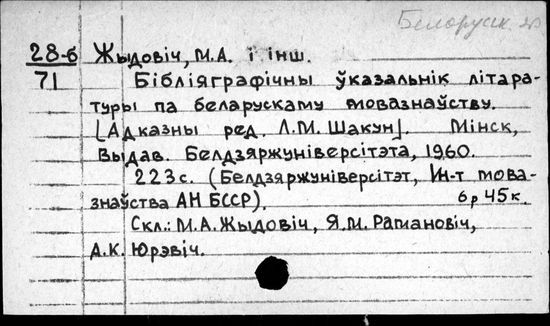 Белорусск. яз
28-б Жыдовіч, М.А. і інш.
71 Бібліяграфічны ўказальнік літара-
туры па беларускаму мовазнаўству.
[Адказны ред. Л.М. Шакун]. Мінск,
Выдав. Белдзяржуніверсітэта, 1960.
223с. (Белдзяржуніверсітэт, Ин-т мова-
знаўства АН БССР). 6р 45к.
Скл.: М.А. Жыдовіч, Я.М. Рамановіч,
А.К. Юрэвіч.